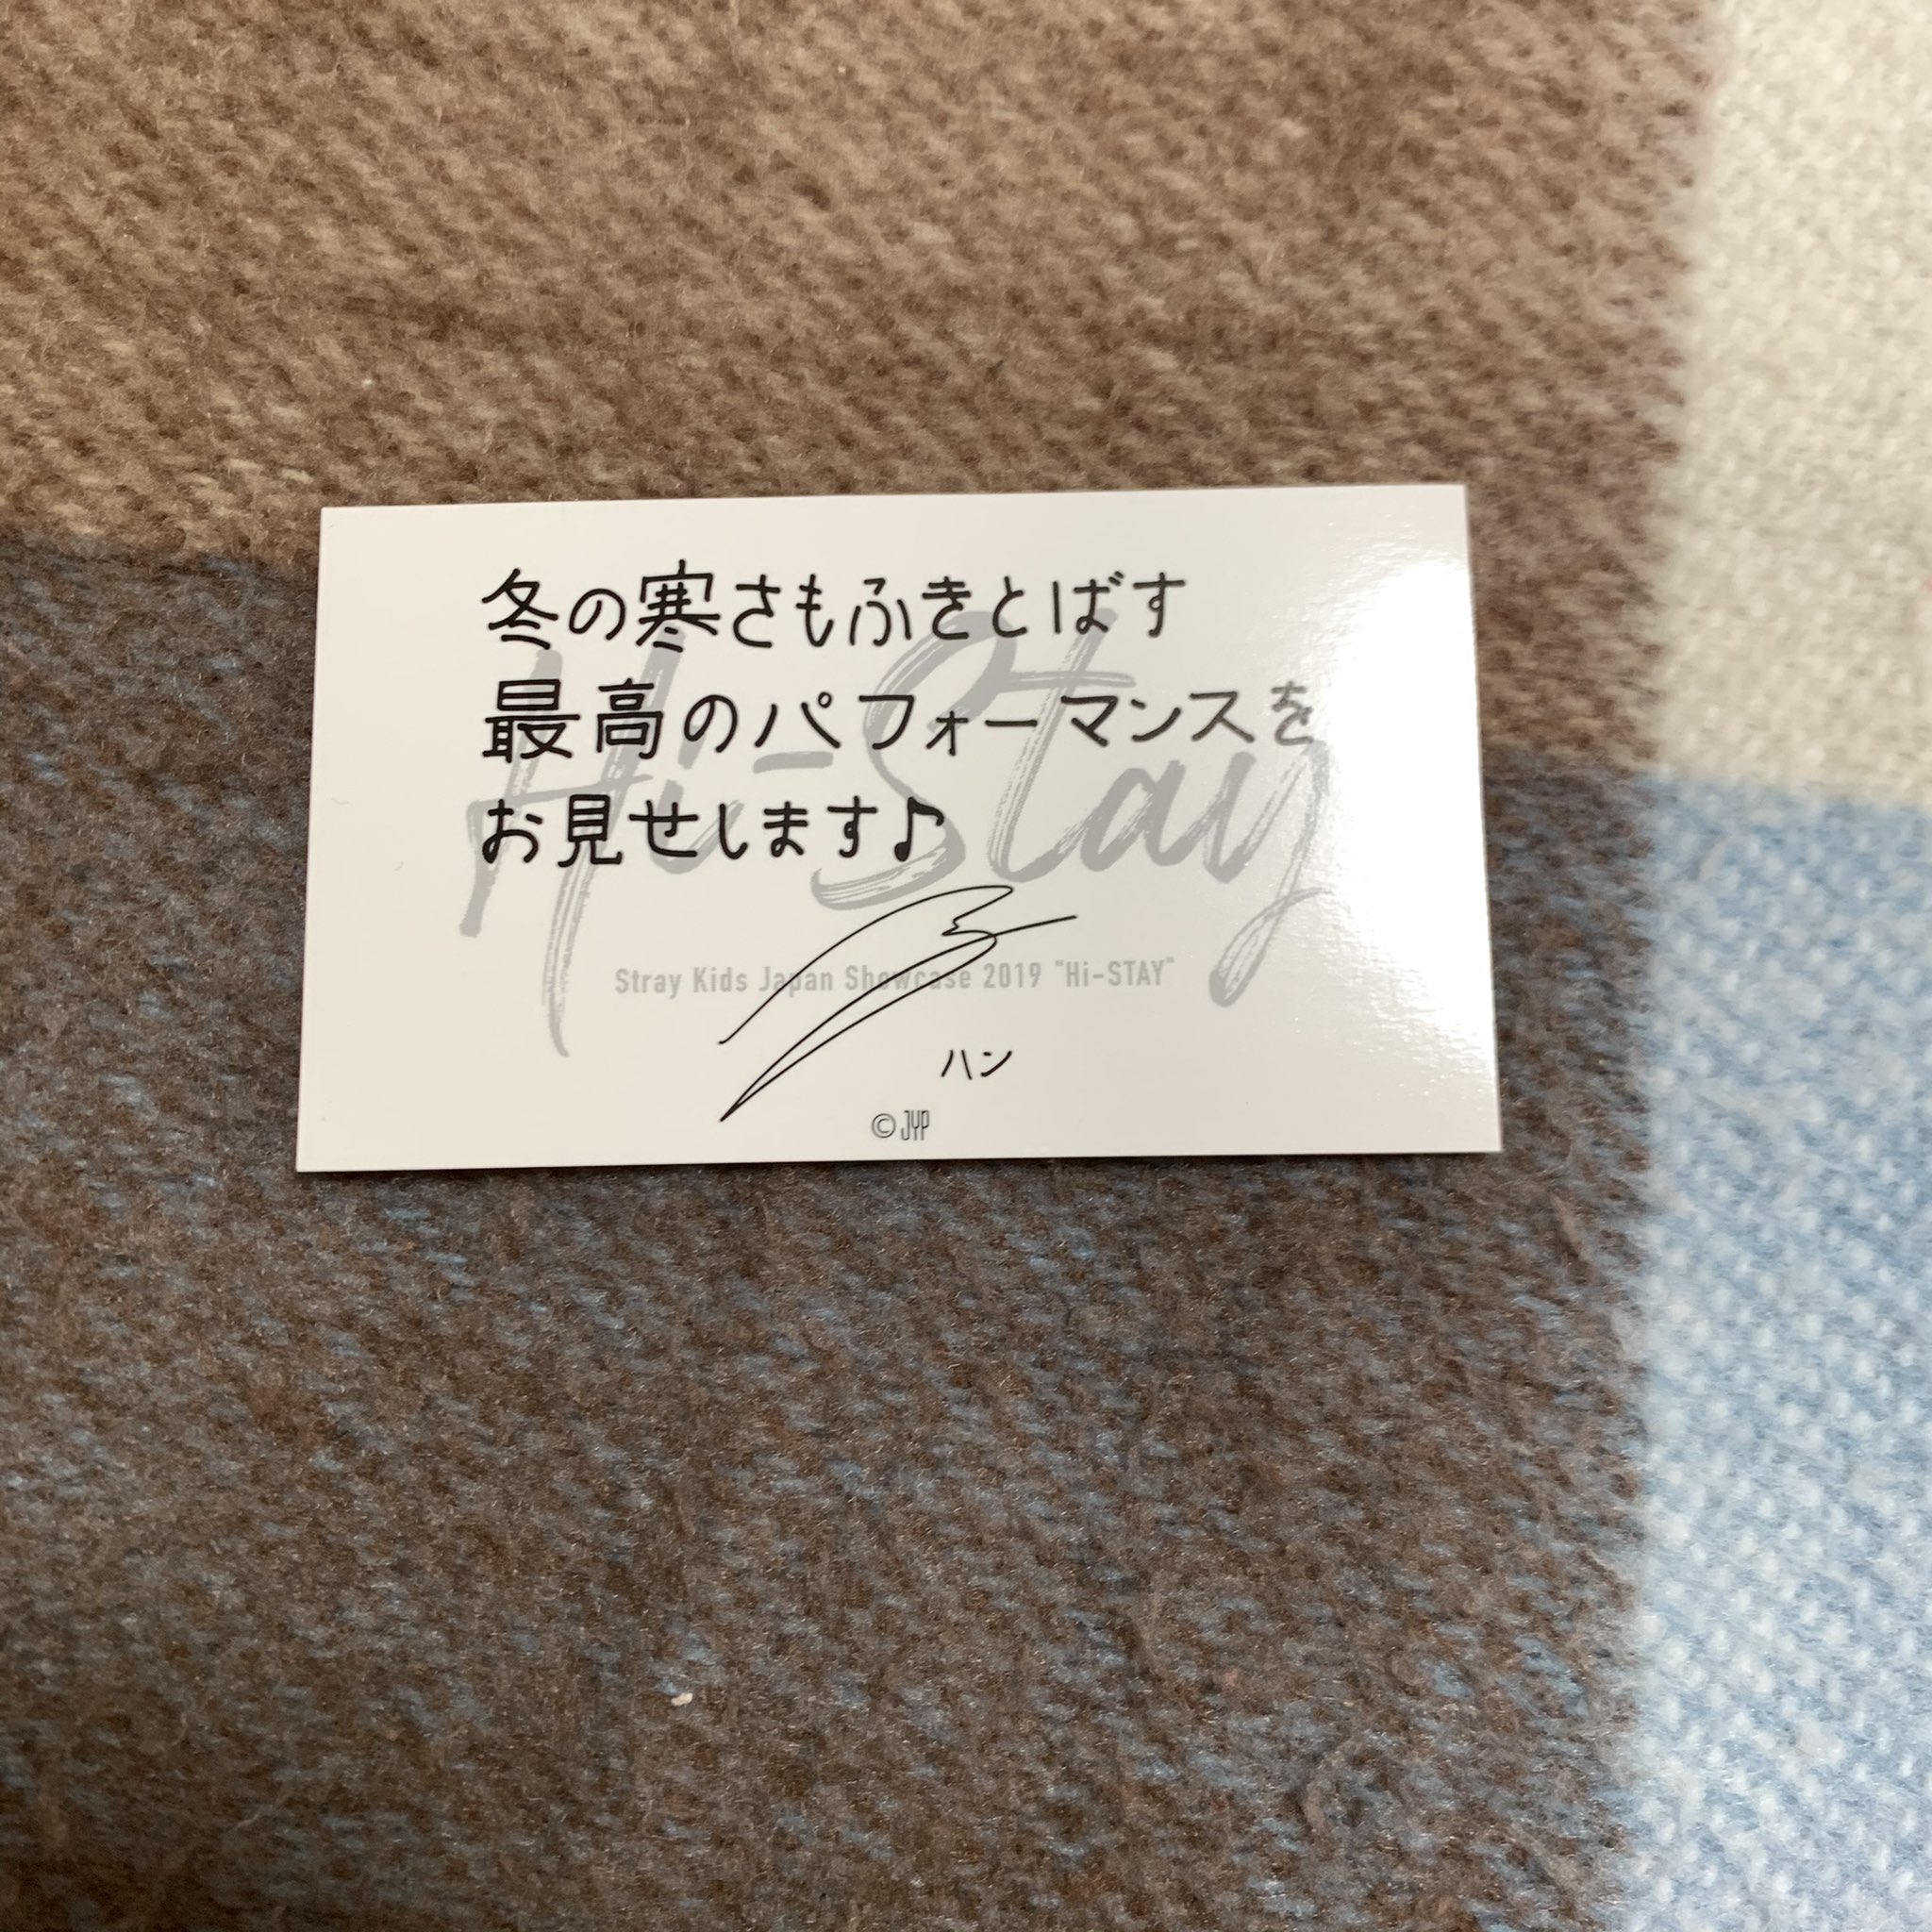 冬の寒さもふきとばす
最高のパフォーマンスを
お見せします♪
Hi-Stay
Stray Kids Japan Showcase 2019 "Hi-STAY"
ハン
© JYP